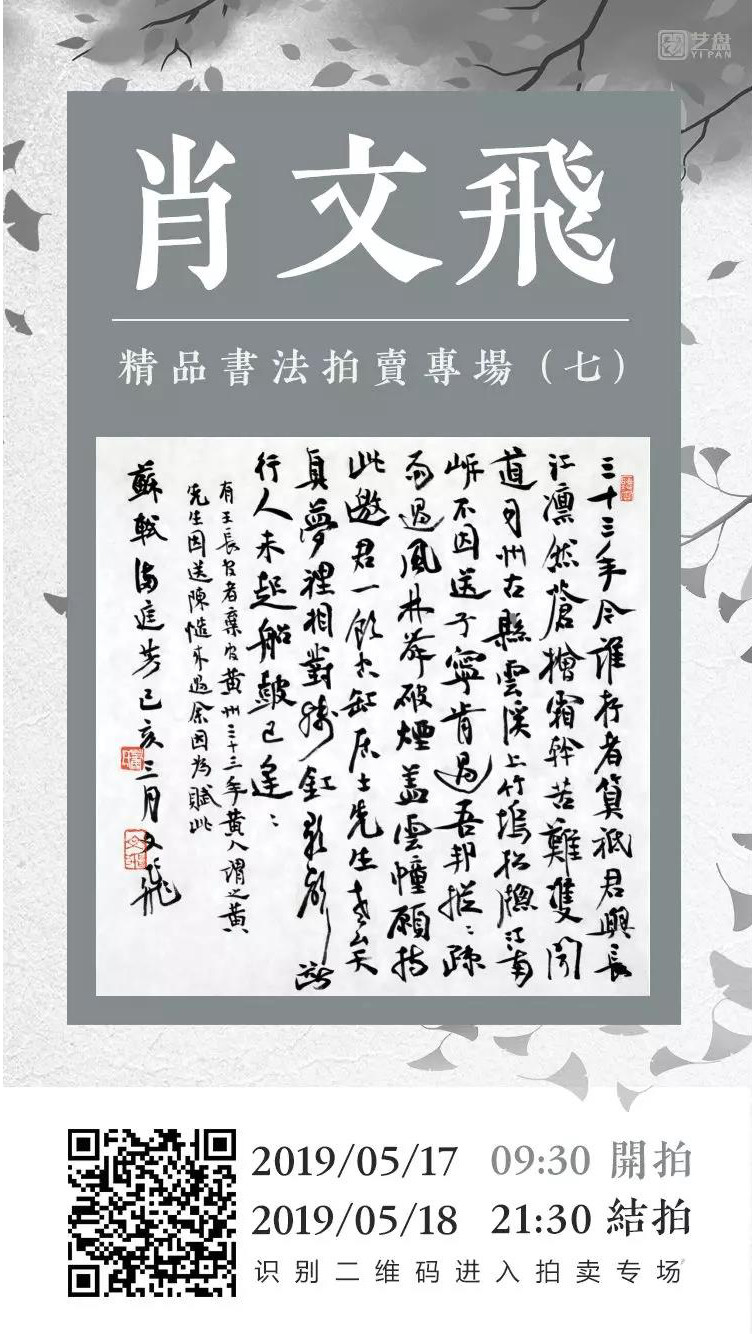 艺盘
YI PAN
肖文飛
精品書法拍賣專場（七）
三十三年今誰存者算祇君與長
江凛然蒼檜霜幹苦難雙聞
道司州古縣雲溪上竹塢松牕江南
岸不因送子寧肯過吾邦摐：疎
雨過風林舞破煙蓋雲幢願持
此邀君一飲空缸居士先生老矣
真夢裡相對殘釭歌聲斷
行人未起船鼓已逢：
有王長官者棄官黃州三十三年黃人謂之黃
先生因送陳慥來過余因為賦此
蘇軾滿庭芳己亥三月文飛
2019/05/17 09:30 開拍
2019/05/18 21:30 結拍
识别二维码进入拍卖专场